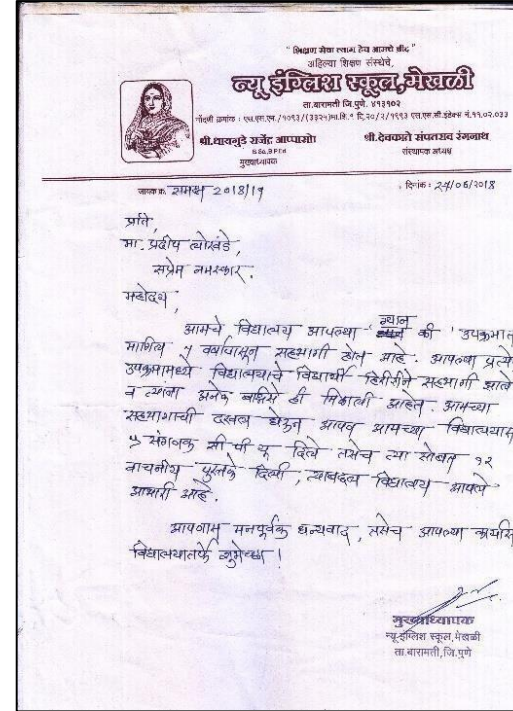 " शिक्षण सेवा त्याग हेच आमचे ब्रीद "
अहिल्या शिक्षण संस्थेचे,
न्यू इंग्लिश स्कूल,मेखळी
ता.बारामती जि.पुणे. ४१३१०२
नोंदणी क्रमांक : एस.एस.एन./१०९३/(३३२५)मा.शि.° दि.२०/२/१९९३ एस.एस.सी.इंडेक्स नं.११.०२.०३३
श्री.धायगुडे राजेंद्र आप्पासो।
B.Sc.,B.P.Ed
मुख्याध्यापक
श्री.देवकाते संपतराव रंगनाथ
संस्थापक अध्यक्ष
जावक क्र. समक्ष 2018/19
दिनांक : 24/06/2018
प्रति,
मा. प्रदीप लोखंडे,
सप्रेम नमस्कार.
महोदय,
आमचे विद्यालय आपल्या ' ग्यान की ' उपक्रमात
मागिल ५ वर्षापासून सहभागी होत आहे. आपल्या प्रत्ये
उपक्रमामध्ये विद्यालयाचे विद्यार्थी हिरीरीने सहभागी झाले
व त्यांना अनेक बक्षिसे ही मिळाली आहेत. आमच्या
सहभागाची दखल घेऊन आपण आमच्या विद्यालयास
५ संगणक सी पी यू दिले तसेच त्या सोबत १२
वाचनीय पुस्तके दिली, त्याबद्दल विद्यालय आपले
आभारी आहे.
आपणास मनपूर्वक धन्यवाद, तसेच आपल्या कार्यास
विद्यालयातर्फे शुभेच्छा !
मुख्याध्यापक
न्यू इंग्लिश स्कूल,मेखळी
ता.बारामती,जि.पुणे